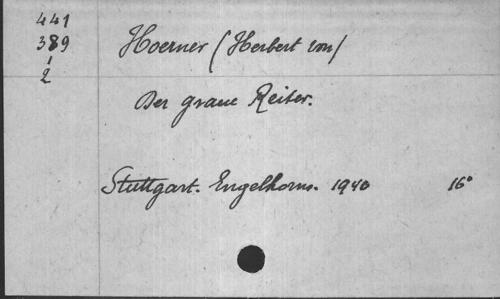 441
389
1
2
Hoerner (Herbert von)
Der graue Reiter.
Stuttgart. Engelhorns. 1940 16°